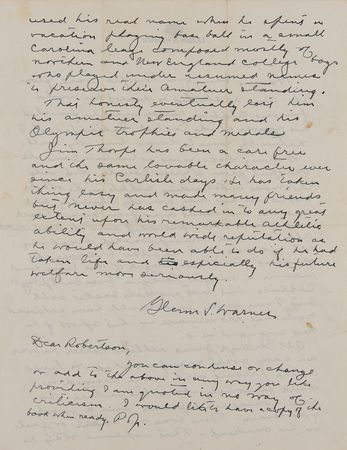 used his real name when he spent a
vacation playing base ball in a small
Carolina league composed mostly of
northern and New England college boys
who played under assumed names
to preserve their amateur standing.
That honesty eventually lost him
his amateur standing and his
Olympic trophies and medals
Jim Thorpe has been a care free
and the same lovable character ever
since his Carlisle days. He has taken
thing easy and made many friends
but never has cashed in to any great
extent upon his remarkable athletic
ability and world wide reputation as
he would have been able to do if he had
taken life and especially his future
welfare more seriously.
Glenn S. Warner
Dear Robertson,
you can condense or change
or add to the above in any way you like
providing I am quoted in no way of
criticism. I would like to have a copy of the
book when ready.